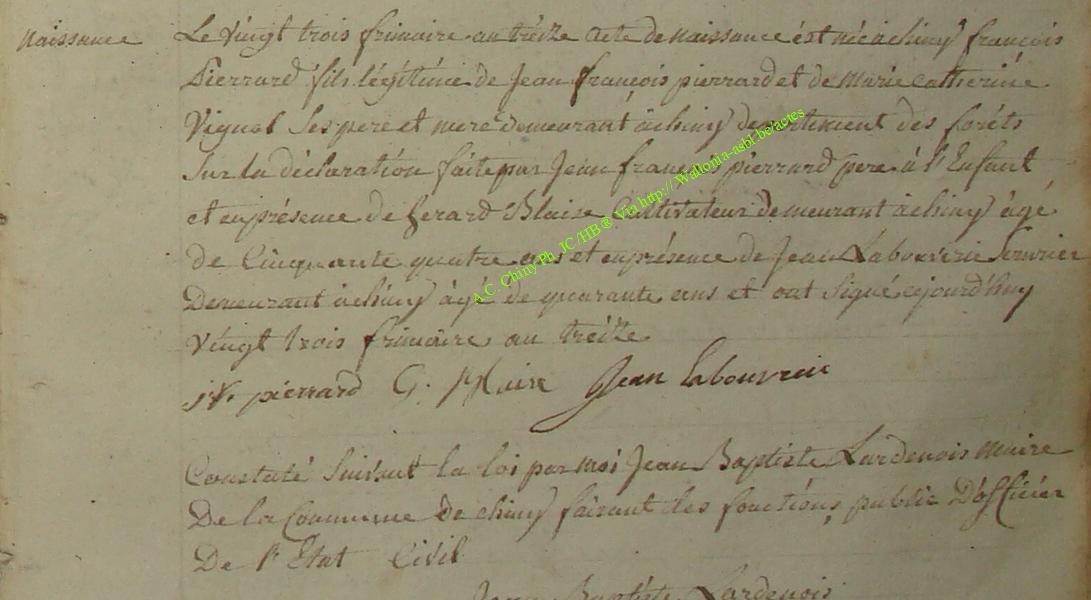 naissance
Le vingt trois frimaire an treize acte de naissance ést née a chiny françois
Pierrard fils légitime de Jean françois pierrard et de Marie catherine
Vignol Ses pere et mere demeurant a chiny departement des foréts
Sur la déclaration faite par Jean françois pierrard pere à l'Enfant
et en présence de Gerard Blaise Cultivateur demeurant a chiny âgé
de Cinquante quatre ans et en présence de Jean Labouverie
Demeurant a chiny âgé de quarante ans et ont Signé ajourd'huy
vingt trois frimaire an treize
pierrard G. Blaise Jean labouverie
Constaté Suivant la loi par moi Jean Baptiste Lardenois maire
De la Commune de chiny faisant les fonctions public D'officier
De l'Etat Civil
Jean Baptiste Lardenois
A.C. Chiny Ph. JC /HB ® Via http://Wallonia-asbl.be/actes